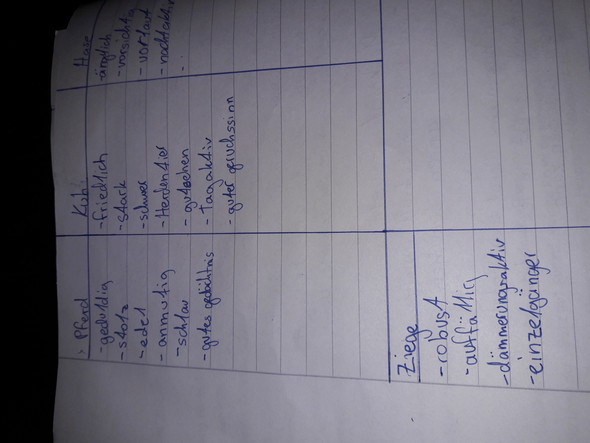 Pferd
-geduldig
-stolz
-edel
-anmutig
-schlau
-gutes gedächtnis
Kuh:
-friedlich
-stark
-schwer
-Herdentier
-gutsehen
-tagaktiv
-guter geruchssinn
Hase
-ängtlich
-vorsichtig
-vorlaut
-nachtaktiv
-..
Ziege
-robust
-auffällig
-dämmerungsaktiv
-einzelgänger